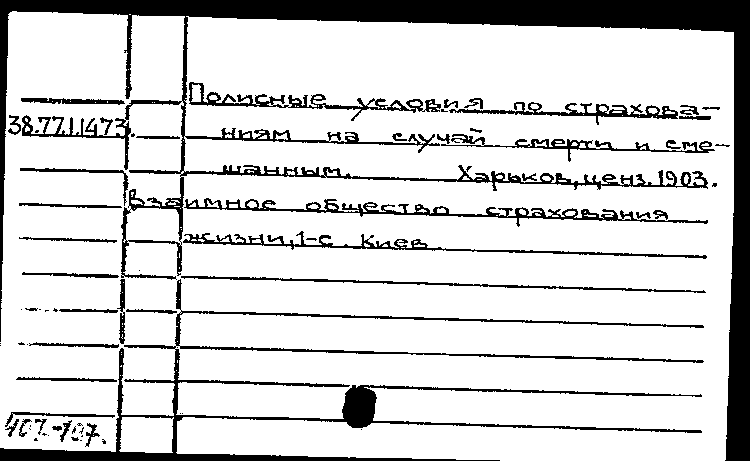 Полисные условия по страхова-
38.77.1.1473. ниям на случай смерти и сме-
шанным. Харьков, ценз. 1903.
Взаимное общество страхования
жизни, 1-е. Киев.
407-197.